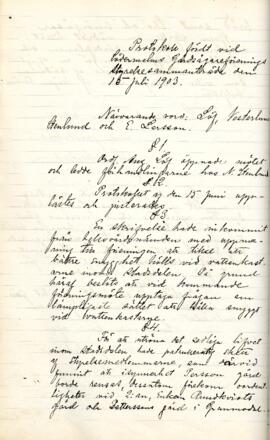 Protokoll fördt vid
Södermalms Gårdsägareförenings
Styrelsesammanträde den
15 juli 1903.
Närvarande voro: Löf, Vesterlund
Hmlund och E. Larsson.
§ 1.
Ordf. Aug. Löf öppnade mötet
och ledde förhandlingarne hos N. Hmlund
§ 2.
Protokollet af den 15 juni upp-
lästes och justerades.
§ 3.
En skrifvelse hade inkommit
från helsovårdsnämnden med uppma-
ning till föreningen att tillse att
bättre snygghet hålls vid vattenkast-
arne inom Stadsdelen. På grund
häraf beslöts att vid kommande
föreningsmöte upptaga frågan om
lämpligaste sättet att hålla snyggt
vid vattenkastarne.
§ 4.
För att utröna det
inom Stadsdelen hade
af styrelsemedlemmarne, som därvid
funnit att i skymnaste Persson gård
borde renses, dessutom förekom
lighet vid Enkan Almkvists
gård och Petterssons gård i Grannrodet.